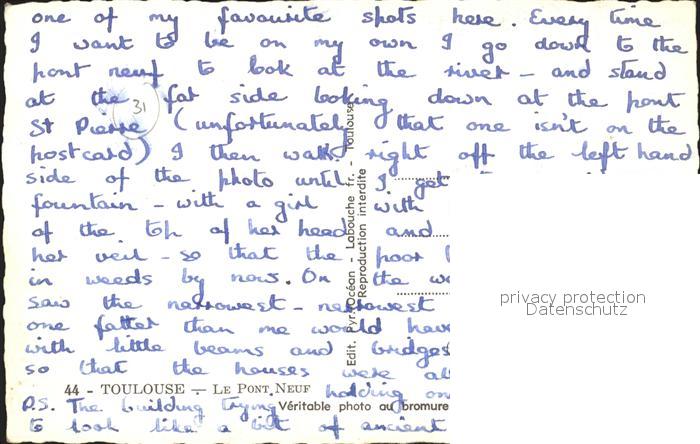 one of my favourite spots here. Every time
I want to be on my own I go down to the
pont neuf to look at the river - and stand
at the far side looking down at the pont
31
St Pierre (unfortunately that one isn't on the
postcard) I then walk right off the left hand
side of the photo until I get
fountain - with a girl with
of the top of her head and
her veil - so that the poor
in weeds by now. On the
saw the narrowest - narrowest
one fatter than me would have
with little beams and bridges
so that the houses were
44 - TOULOUSE — LE PONT NEUF
holding on
P.S. The building trying
Véritable photo au bromure
to look like a bit of ancient
Edit. Pyr.-Océan - Labouche fr. - Toulouse
Reproduction interdite
privacy protection
Datenschutz